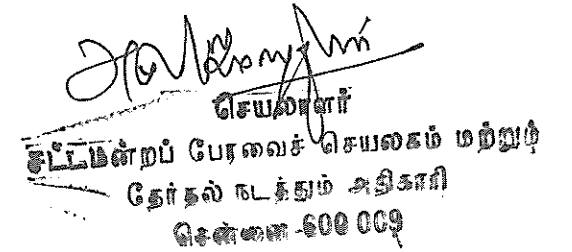 செயலாளர்
சட்டமன்றப் பேரவைச் செயலகம் மற்றும்
தேர்தல் நடத்தும் அதிகாரி
சென்னை-600 009